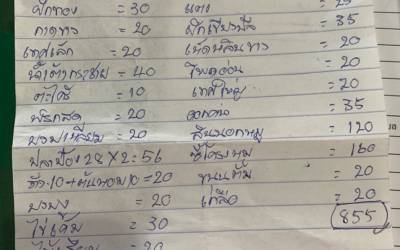 ฟักทอง = 30 แตง = 25
กาดขาว = 20 ผักเขียวปลี = 35
เทศเล็ก = 20 เห็ดหลินขาว = 20
น้ำเต้า กระชาย = 40 โพดอ่อน = 20
ตะไคร้ = 10 เทศใหญ่ = 20
พริกสด = 20 = 35
บวบเหลี่ยม = 20 สันนอกหมู = 120
ปลาป๋อง 28 x 2 = 56 ซี่โครงหมู = 160
ถั่ว 10 + ต้นหอม 10 = 20 ขนมต้ม = 20
บวบงู = 20 เกลือ = 20
ไข่เค็ม = 30 855
= 20